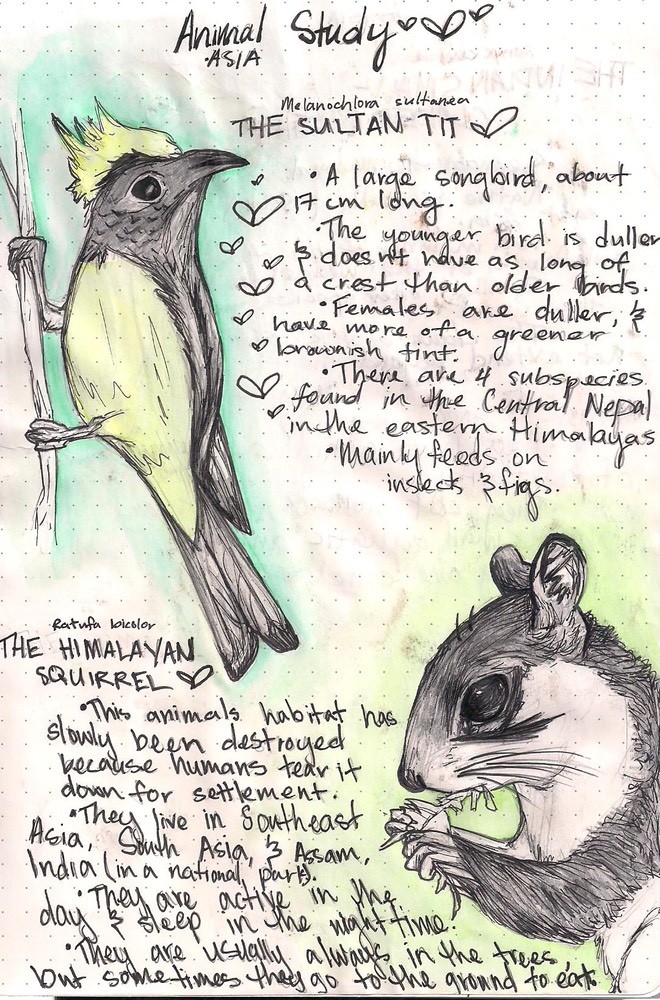 Animal Study
·ASIA
Melanochlora sultanea
THE SULTAN TIT
·A large songbird, about
17 cm long.
·The younger bird is duller
& doesn't have as long of
a crest than older birds.
·Females are duller, &
have more of a greener
brownish tint.
·There are 4 subspecies
found in the Central Nepal
in the eastern Himalayas
·Mainly feeds on
insects & figs.
Ratufa bicolor
THE HIMALAYAN
SQUIRREL
·This animals habitat has
slowly been destroyed
because humans tear it
down for settlement.
·They live in Southeast
Asia, South Asia, & Assam,
India (in a national park).
·They are active in the
day & sleep in the nighttime.
·They are usually always in the trees,
but sometimes they go to the ground to eat.